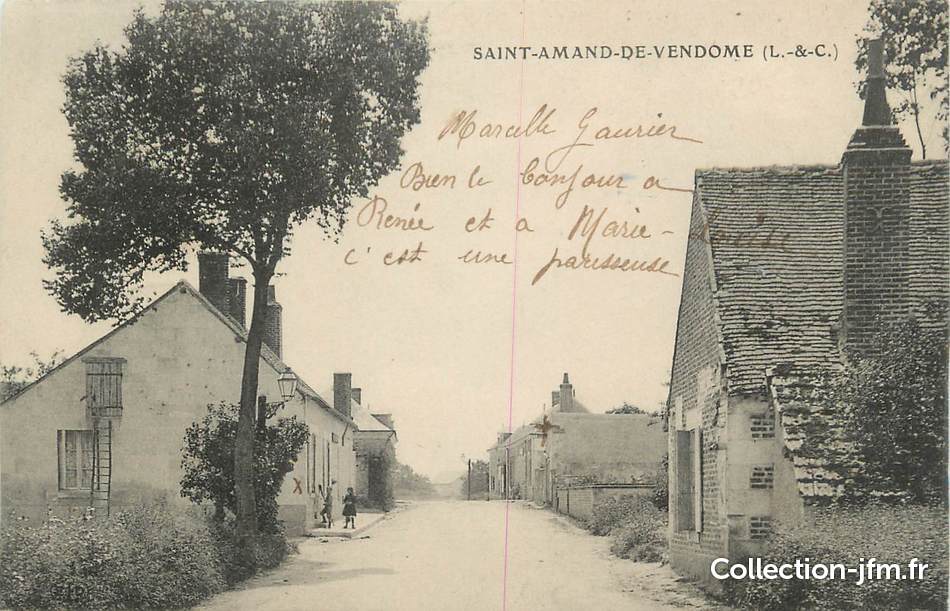 SAINT-AMAND-DE-VENDOME (L.-&-C.)
Marcelle Gaurier
Bien le bonjour a
Renée et a Marie-Louise
c'est une paresseuse
x
Collection-jfm.fr